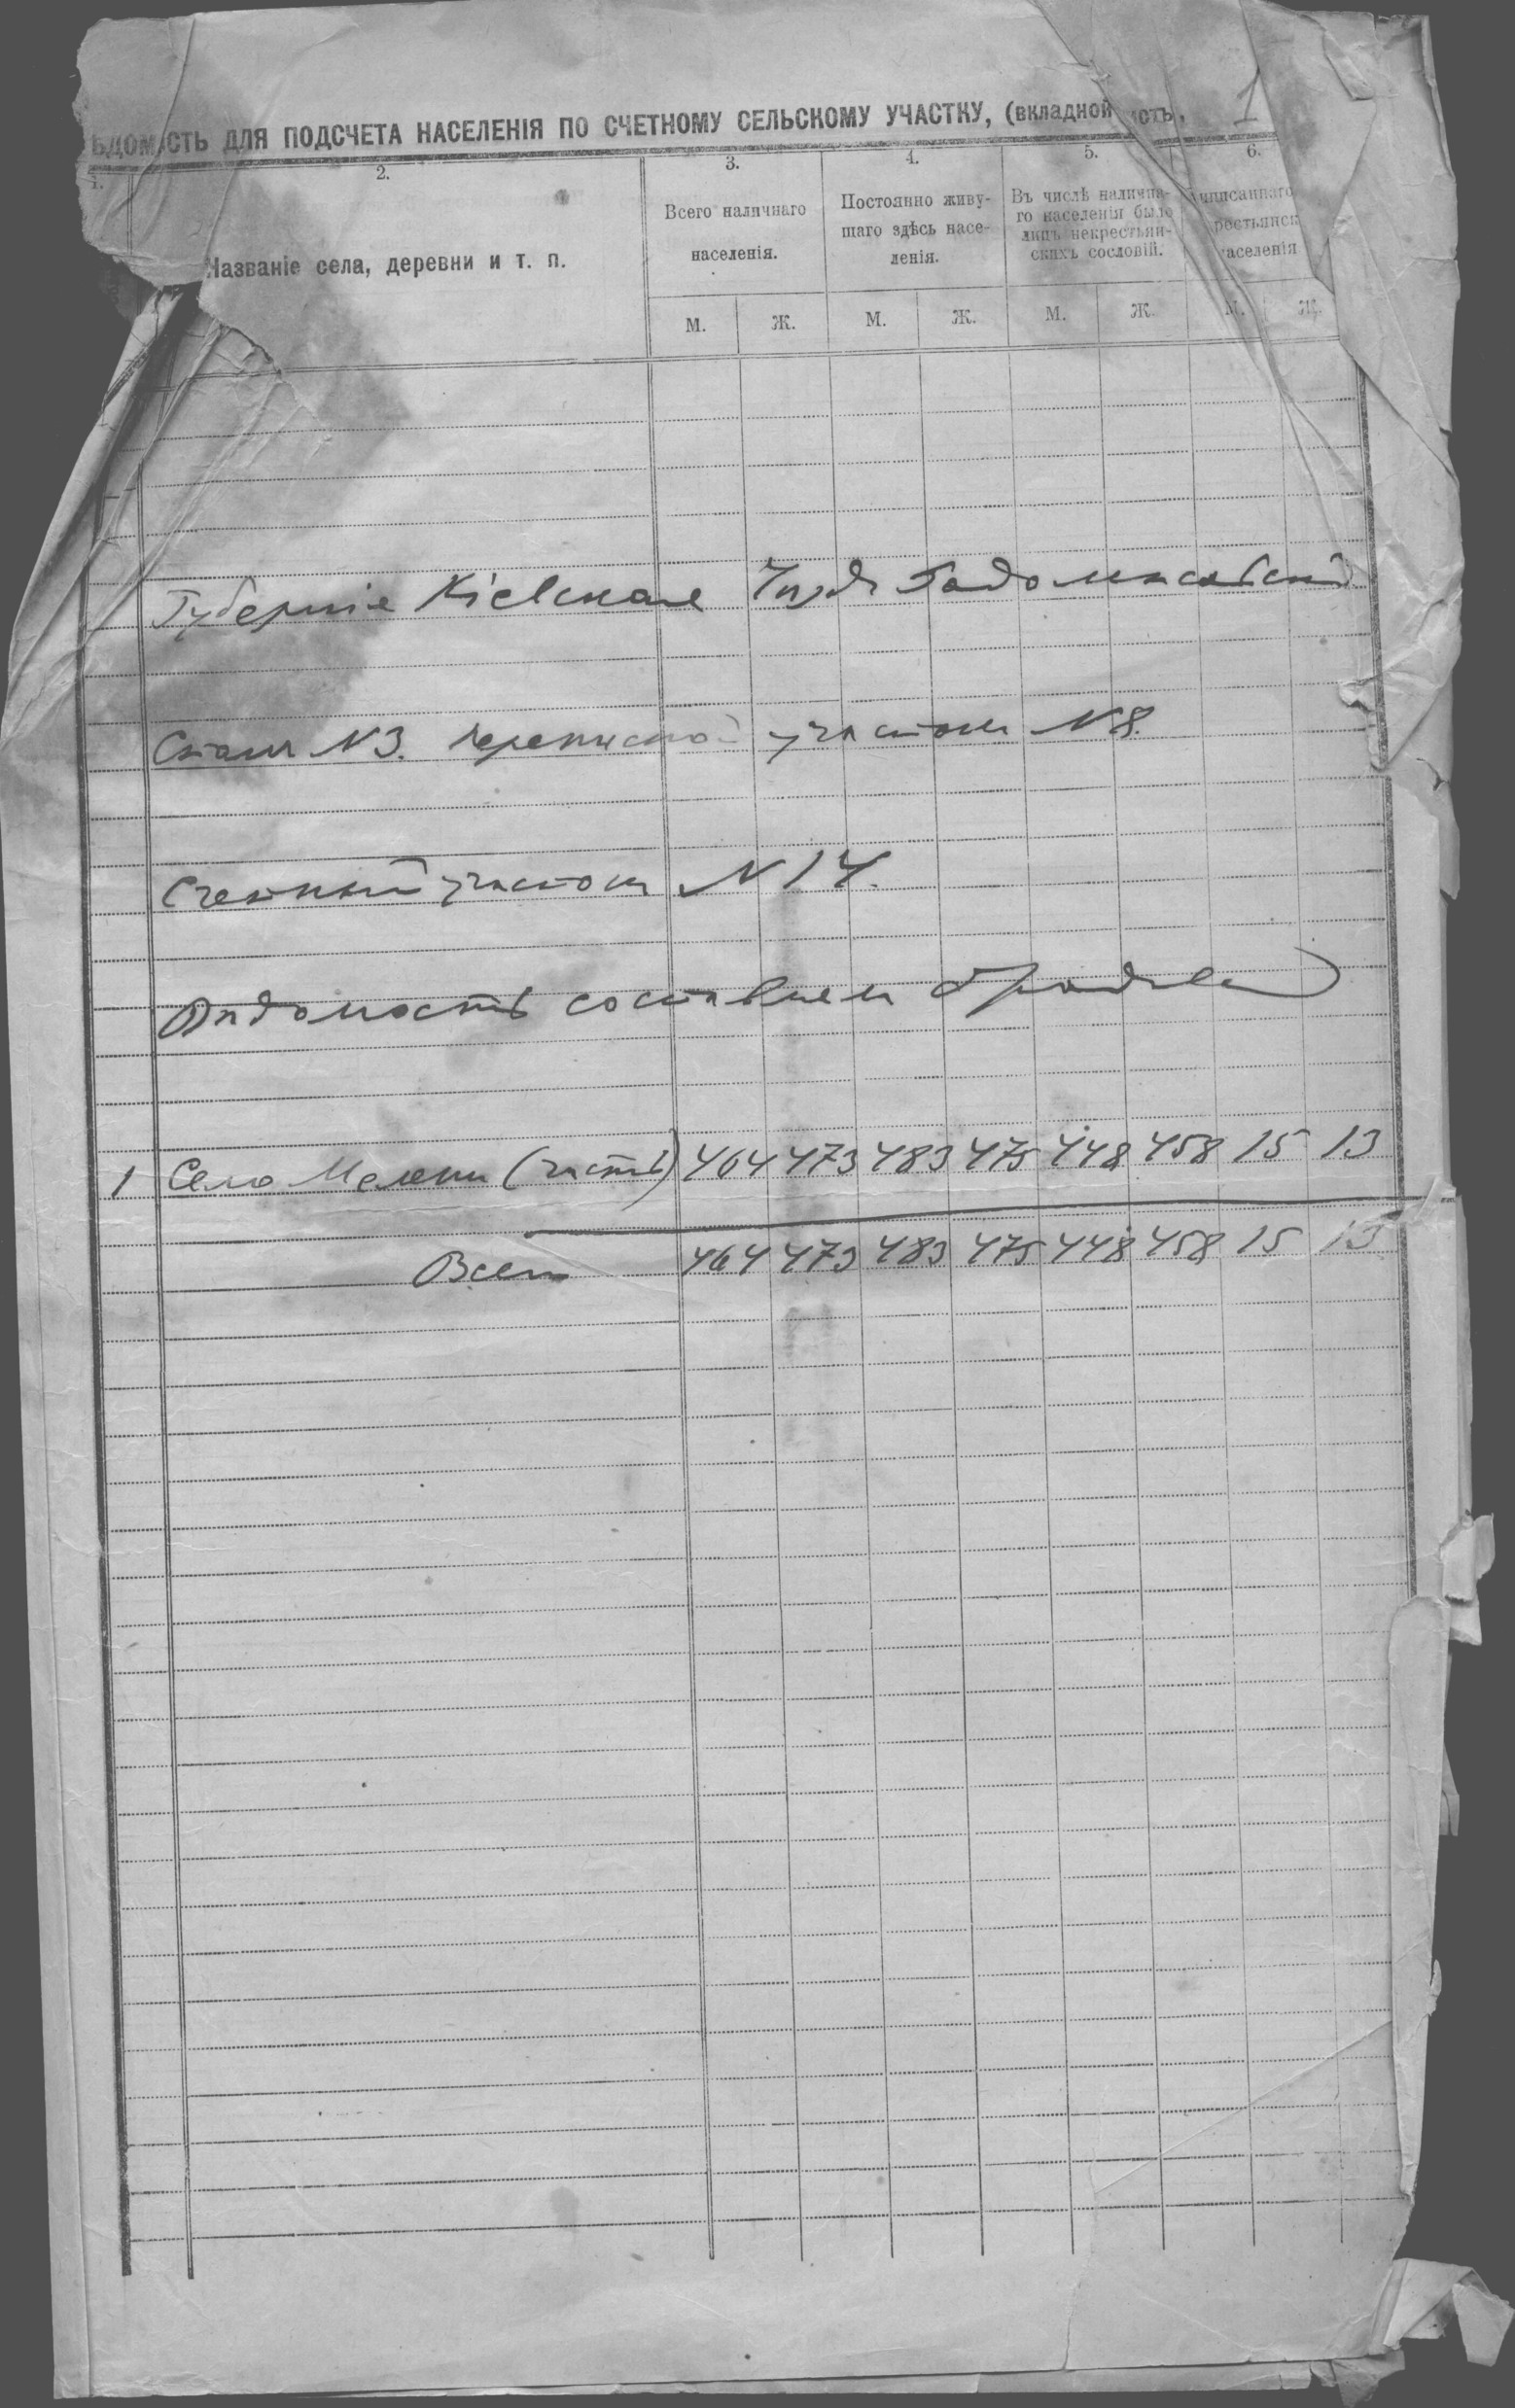 ѢДОМОСТЬ ДЛЯ ПОДСЧЕТА НАСЕЛЕНІЯ ПО СЧЕТНОМУ СЕЛЬСКОМУ УЧАСТКУ, (вкладной истъ, 1
1. 2. 3. 4. 5. 6.
Названіе села, деревни и т. п.
Всего наличнаго
населенія.
Постоянно живу-
щаго здѣсь насе-
ленія.
Въ числѣ налична-
го населенія было
лицъ некрестьян-
скихъ сословій.
приписаннаго
рестьянск
аселенія
М. Ж. М. Ж. М. Ж. М. Ж.
Губернія Кіевская Уѣздъ Радомысльскій
Станъ N 3. переписной участокъ N 8.
Счетный участокъ N 14.
Вѣдомость составлена
1 Село Мелени (часть) 464 473 483 475 448 458 15 13
Всего 464 473 483 475 448 458 15 13